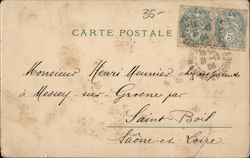 35-
CARTE POSTALE
Monsieur Henri Meunier
à Messey-sur-Grosne par
Saint-Boil
Saône-et-Loire